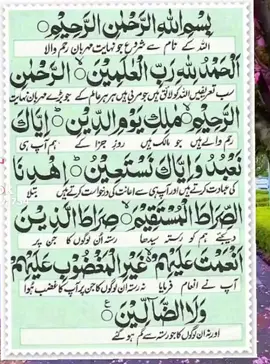 بِسْمِ اللّٰهِ الرَّحْمٰنِ الرَّحِيْمِ
اللہ کے نام سے شروع جو نہایت مہربان رحم والا
اَلْحَمْدُ لِلّٰهِ رَبِّ الْعٰلَمِيْنَ ۙ الرَّحْمٰنِ
سب تعریفیں اللہ کو لائق ہیں جو مربی ہیں ہر ہر عالم کے جو بڑے مہربان نہایت
الرَّحِيْمِ ۙ مٰلِكِ يَوْمِ الدِّيْنِ ؕ اِيَّاكَ
رحم والے ہیں جو مالک ہیں روز جزا کے ہم آپ ہی
نَعْبُدُ وَاِيَّاكَ نَسْتَعِيْنُ ؕ اِهْدِنَا
کی عبادت کرتے ہیں اور آپ ہی سے اعانت کی درخواست کرتے ہیں بتلا
الصِّرَاطَ الْمُسْتَقِيْمَ ۙ صِرَاطَ الَّذِيْنَ
دیجئے ہم کو رستہ سیدھا رستہ ان لوگوں کا جن پر
اَنْعَمْتَ عَلَيْهِمْ ۙ غَيْرِ الْمَغْضُوْبِ عَلَيْهِمْ
آپ نے انعام فرمایا نہ رستہ ان لوگوں کا جن پر آپ کا غضب ہوا
وَلَا الضَّآلِّيْنَ
اور نہ ان لوگوں کا جو رستہ سے گم ہو گئے